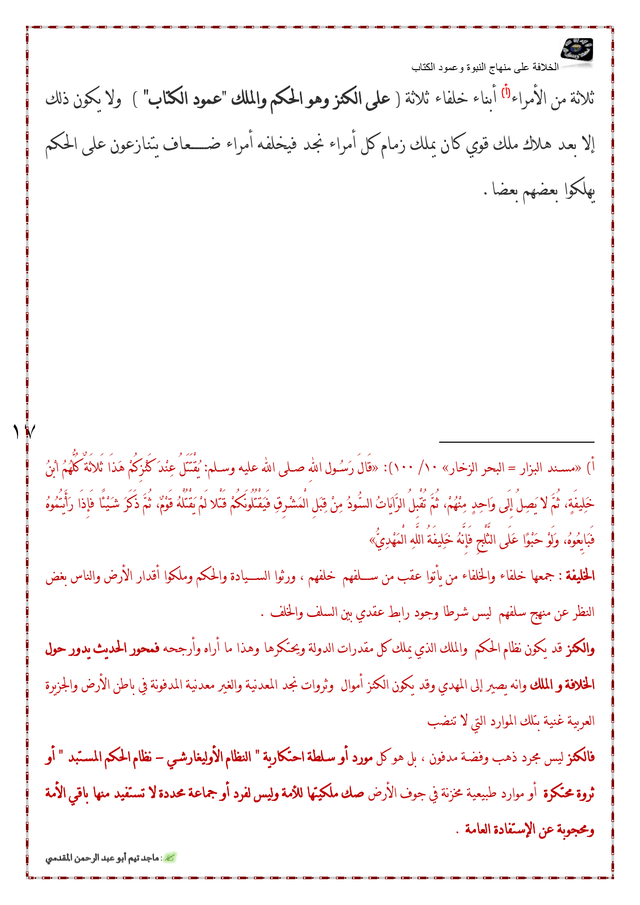 الخلافة على منهاج النبوة وعمود الكتاب
ثلاثة من الأمراء(أ) أبناء خلفاء ثلاثة ( على الكنز وهو الحكم والملك "عمود الكتاب" ) ولا يكون ذلك
إلا بعد هلاك ملك قوي كان يملك زمام كل أمراء نجد فيخلفه أمراء ضــعاف يتنازعون على الحكم
يهلكوا بعضهم بعضا .
١٧
أ) «مسند البزار = البحر الزخار» ١٠/ ١٠٠): «قَالَ رَسُول الله صلى الله عليه وسلم: يُقْتَتَلُ عِنْدَ كَنْزِكُمْ هَذَا ثَلاثَةٌ كُلُّهُمُ ابْنُ
خَلِيفَةٍ، ثُمَّ لا يَصِلُ إِلَى وَاحِدٍ مِنْهُمْ، ثُمَّ تُقْبِلُ الرَّايَاتُ السُّودُ مِنْ قِبَلِ الْمَشْرِقِ فَيَقْتُلُونَكُمْ قَتْلا لَمْ يَقْتُلْهُ قَوْمٌ، ثُمَّ ذَكَرَ شَيْئًا فَإِذَا رَأَيْتُمُوهُ
فَبَايِعُوهُ، وَلَوْ حَبْوًا عَلَى الثَّلْجِ فَإِنَّهُ خَلِيفَةُ اللَّهِ الْمَهْدِيُّ»
الخليفة : جمعها خلفاء والخلفاء من يأتوا عقب من ســلفهم خلفهم ، ورثوا الســيادة والحكم وملكوا أقدار الأرض والناس بغض
النظر عن منهج سلفهم ليس شرطا وجود رابط عقدي بين السلف والخلف .
والكنز قد يكون نظام الحكم والملك الذي يملك كل مقدرات الدولة ويحتكرها وهذا ما أراه وأرجحه فمحور الحديث يدور حول
الخلافة و الملك وانه يصير إلى المهدي وقد يكون الكنز أموال وثروات نجد المعدنية والغير معدنية المدفونة في باطن الأرض والجزيرة
العربية غنية بتلك الموارد التي لا تنضب
فالكنز ليس مجرد ذهب وفضة مدفون ، بل هو كل مورد أو سلطة احتكارية " النظام الأوليغارشي – نظام الحكم المستبد " أو
ثروة محتكرة أو موارد طبيعية مخزنة في جوف الأرض صك ملكيتها للأمة وليس لفرد أو جماعة محددة لا تستفيد منها باقي الأمة
ومحجوبة عن الإستفادة العامة .
: ماجد تيم أبو عبد الرحمن المقدسي